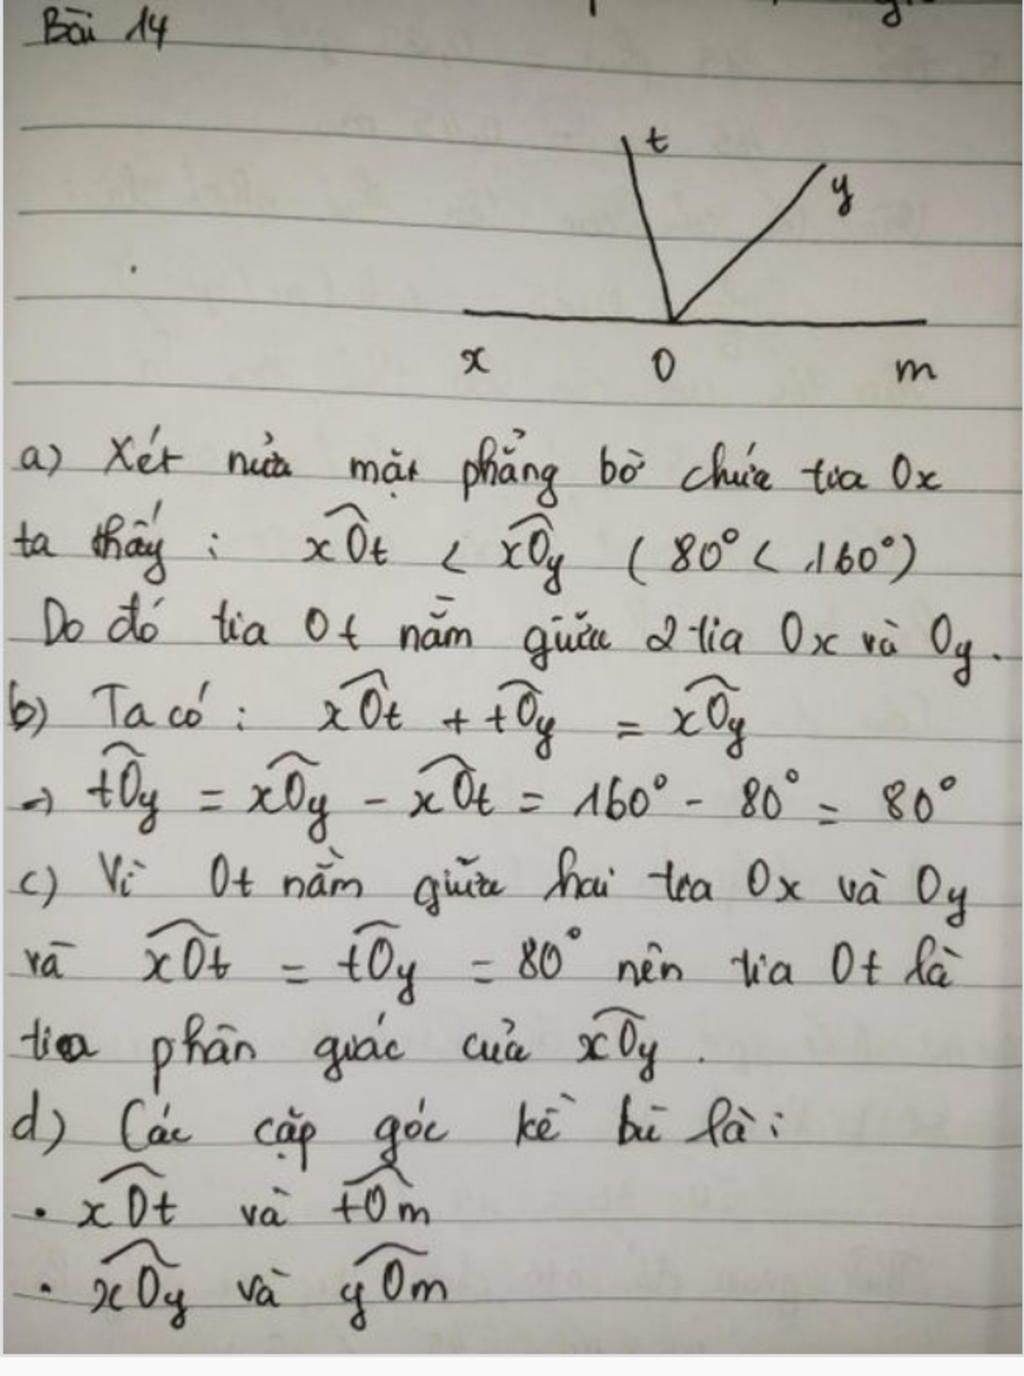 Bài 14
t
y
x O m
a) Xét nửa mặt phẳng bờ chứa tia Ox
ta thấy : xOt < xOy ( 80° < 160°)
Do đó tia Ot nằm giữa 2 tia Ox và Oy.
b) Ta có : xOt + tOy = xOy
→ tOy = xOy - xOt = 160° - 80° = 80°
c) Vì Ot nằm giữa hai tia Ox và Oy
và xOt = tOy = 80° nên tia Ot là
tia phân giác của xOy .
d) Các cặp góc kề bù là :
• xOt và tOm
• xOy và yOm